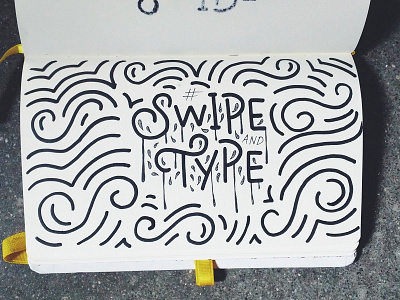 #
SWIPE
AND
TYPE